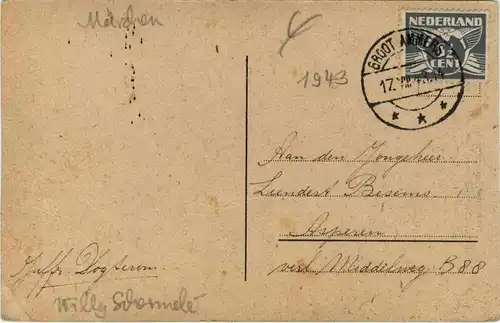 Märchen
1943
NEDERLAND
CENT
GROOT AMMERS
17. VII
Aan den Jongeheer
Leendert Besems
Asperen
Middelweg B 88
Juffr. Dogterom
Willy